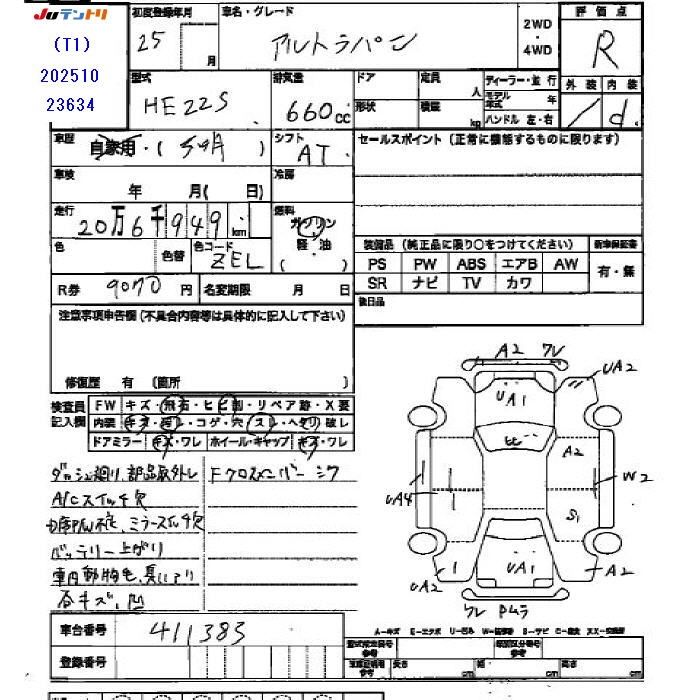 JUテントリ
(T1)
202510
23634
初度登録年月
25 月
車名・グレード
アルトラパン
2WD
・
4WD
評価点
R
型式
HE22S
排気量
660cc
ドア
形状
定員 人
積載 kg
ディーラー・並行
モデル年式 年
ハンドル 左・右
外装 内装
/ d
車歴
自家用・( )
シフト
AT
セールスポイント (正常に機能するものに限ります)
車検
年 月( 日)
冷房
走行
20万6千949 km
燃料
ガソリン
軽・油
( )
色
色替
色コード
ZEL
装備品 (純正品に限り○をつけてください)
新車保証書
PS PW ABS エアB AW
SR ナビ TV カワ
有・無
R券 9070 円
名変期限 月 日
後日品
注意事項申告欄(不具合内容等は具体的に記入して下さい)
修復歴 有 (箇所 )
検査員記入欄
FW キズ・飛石・ヒビ割・リペア跡・X要
内装 キズ・汚レ・コゲ・穴・スレ・ヘタリ・破レ
ドアミラー キズ・ワレ ホイール・キャップ キズ・ワレ
ダッシュ廻り、部品取外し
Fクロスメンバーシワ
A/Cスイッチ欠
ミラースイッチ欠
バッテリー上がり
車内動物毛、臭いあり
各キズ、凹
A2 ワレ
UA2
UA1
ヒビ
A2
W2
UA4
S1
UA1
UA2
A2
ワレ Pムラ
A-キズ E-エクボ U-凹み W-板修有 S-サビ C-腐食 XX-交換済
車台番号
411383
登録番号
型式指定番号
参考
類別区分番号
参考
車庫証明用
参考
長さ cm
幅 cm
高さ cm